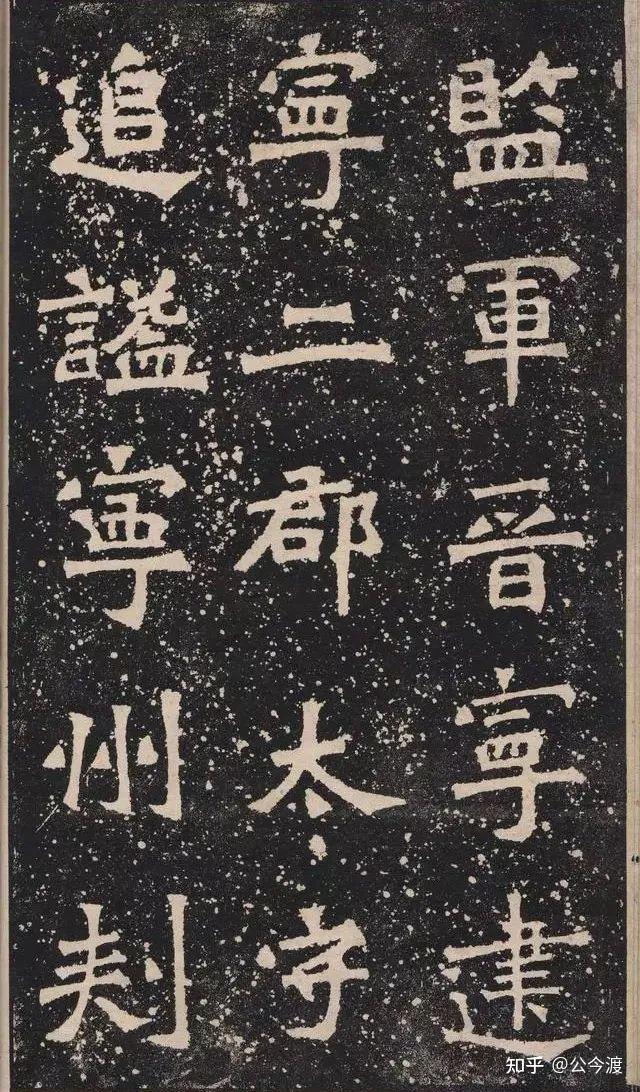 監軍晉寧建
寧二郡太守
追謚寧州刾
知乎 @公今渡